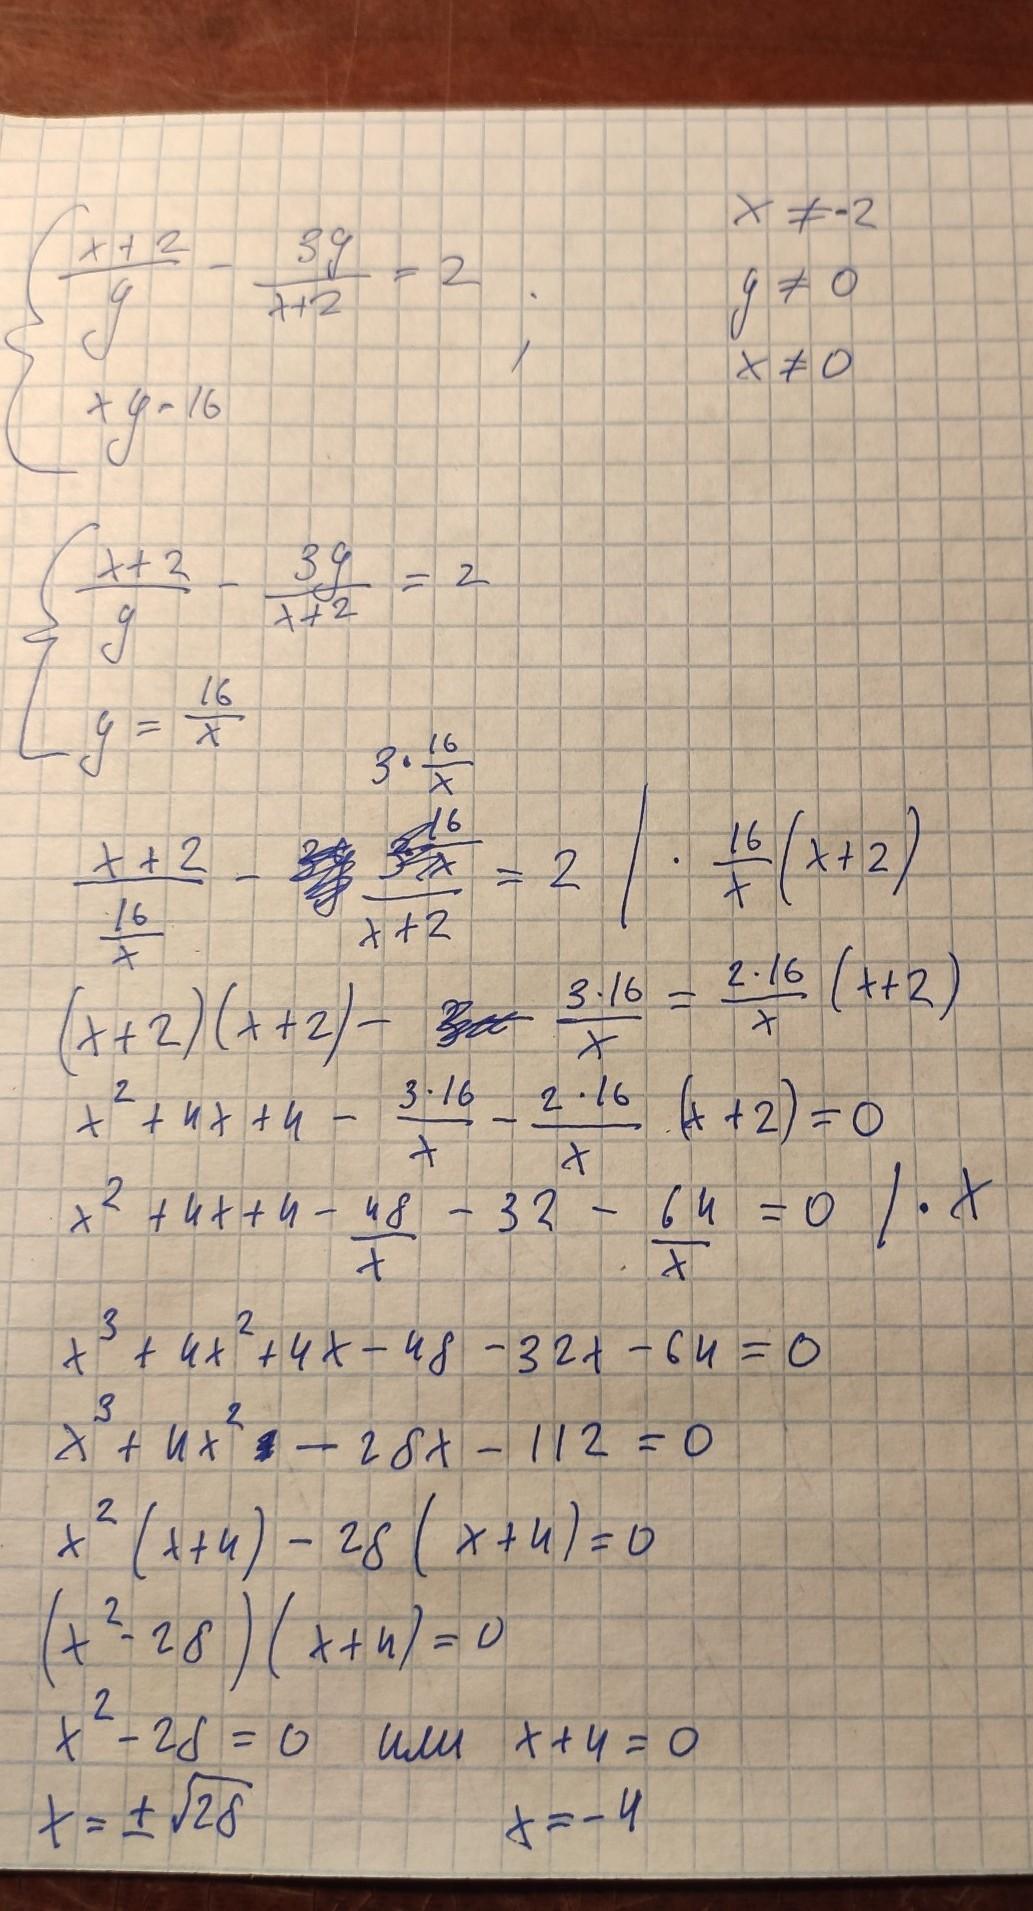 (x+2)/y - 3y/(x+2) = 2 ;
xy = 16
x ≠ -2
y ≠ 0
x ≠ 0
(x+2)/y - 3y/(x+2) = 2
y = 16/x
(x+2)/(16/x) - (3·16/x)/(x+2) = 2 / · 16/x (x+2)
(x+2)(x+2) - 3·16/x = 2·16/x (x+2)
x² + 4x + 4 - 3·16/x - 2·16/x (x+2) = 0
x² + 4x + 4 - 48/x - 32 - 64/x = 0 / · x
x³ + 4x² + 4x - 48 - 32x - 64 = 0
x³ + 4x² - 28x - 112 = 0
x² (x+4) - 28 (x+4) = 0
(x² - 28)(x+4) = 0
x² - 28 = 0 или x+4 = 0
x = ± √28 x = -4